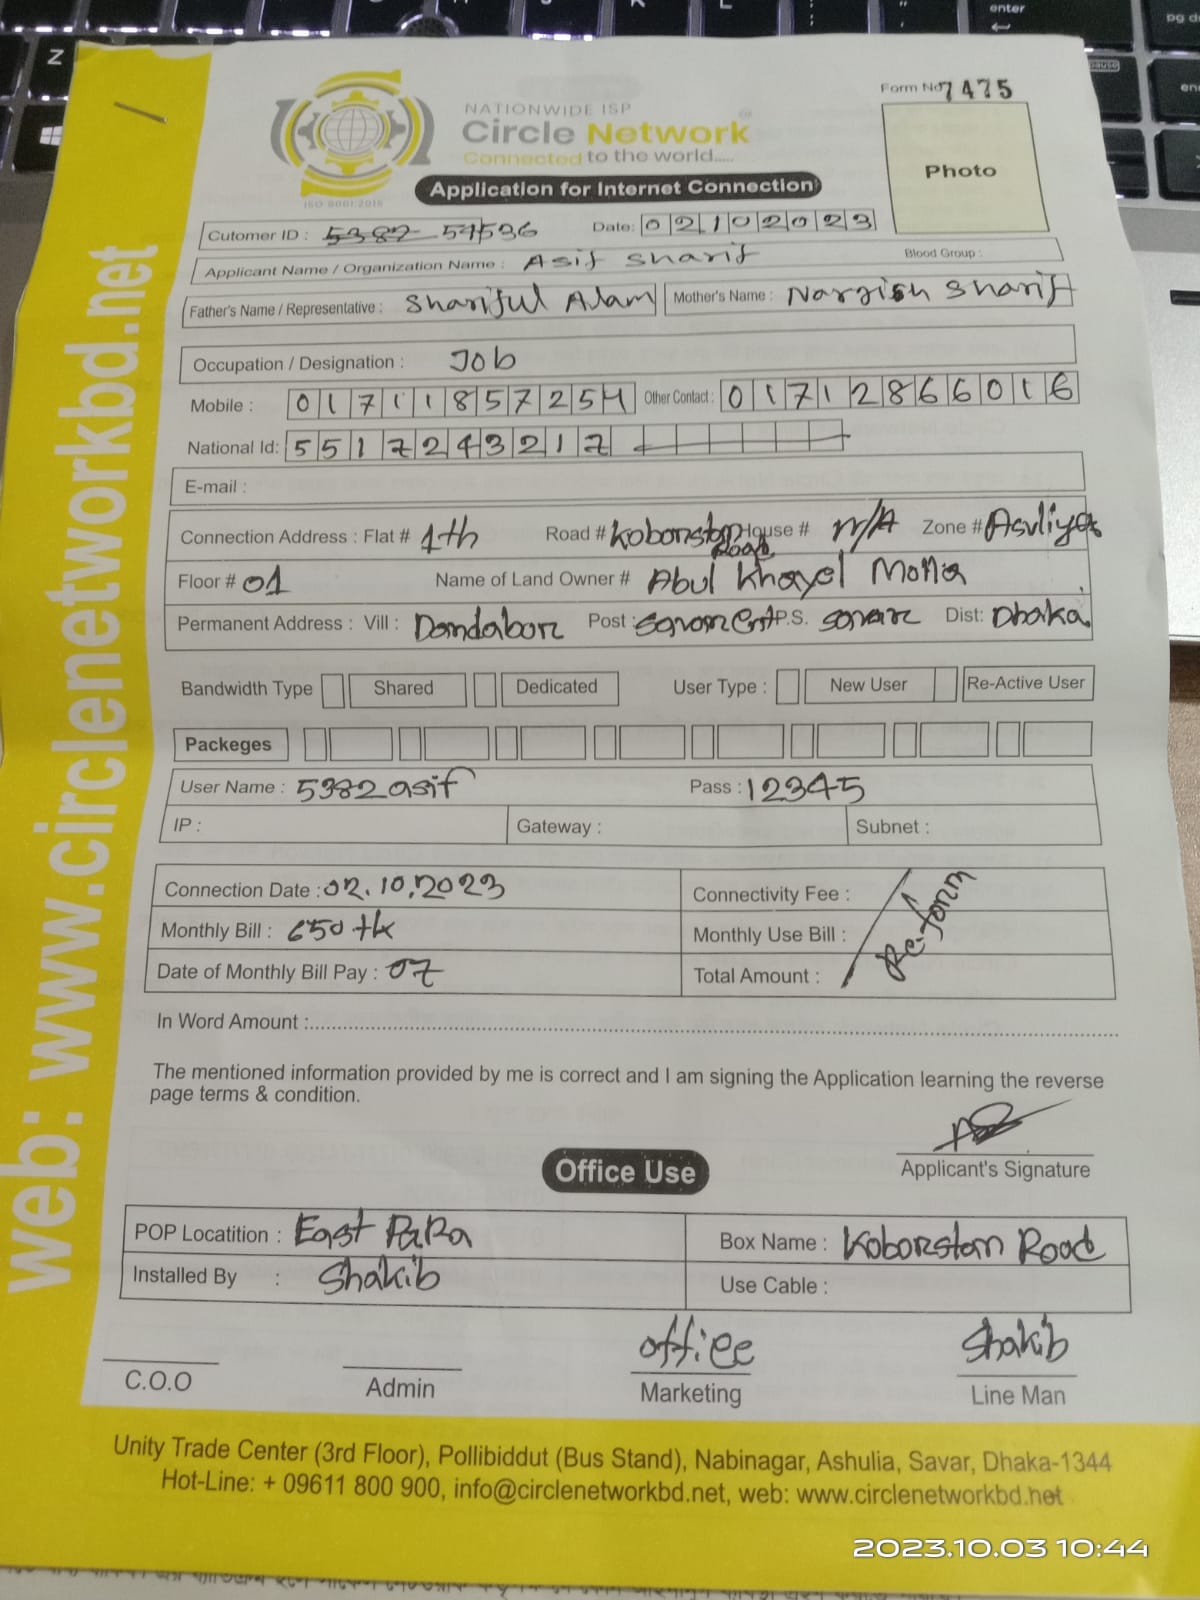 NATIONWIDE ISP
Circle Network
Connected to the world.....
ISO 9001:2015
Form No 7475
Photo
Application for Internet Connection
Cutomer ID : 5382 54536 Date: 02102023
Applicant Name / Organization Name : Asif sharif Blood Group :
Father's Name / Representative : Shariful Alam Mother's Name : Nargish Sharif
Occupation / Designation : Job
Mobile : 01711857254 Other Contact : 01712866016
National Id: 5517243217
E-mail :
Connection Address : Flat # 1th Road # Koborstan Road House # N/A Zone # Asuliya
Floor # 01 Name of Land Owner # Abul Khayel Molla
Permanent Address : Vill : Dandabor Post : P.S. savar Dist: Dhaka
Bandwidth Type Shared Dedicated User Type : New User Re-Active User
Packeges
User Name : 5382asif Pass : 12345
IP : Gateway : Subnet :
Connection Date : 02.10.2023 Connectivity Fee :
Monthly Bill : 650 tk Monthly Use Bill :
Date of Monthly Bill Pay : 07 Total Amount :
Re-form
In Word Amount :
The mentioned information provided by me is correct and I am signing the Application learning the reverse
page terms & condition.
Applicant's Signature
Office Use
POP Locatition : East PaRa Box Name : Koborstan Road
Installed By : Shakib Use Cable :
office Shakib
C.O.O Admin Marketing Line Man
Unity Trade Center (3rd Floor), Pollibiddut (Bus Stand), Nabinagar, Ashulia, Savar, Dhaka-1344
Hot-Line: + 09611 800 900, info@circlenetworkbd.net, web: www.circlenetworkbd.net
web: www.circlenetworkbd.net
2023.10.03 10:44